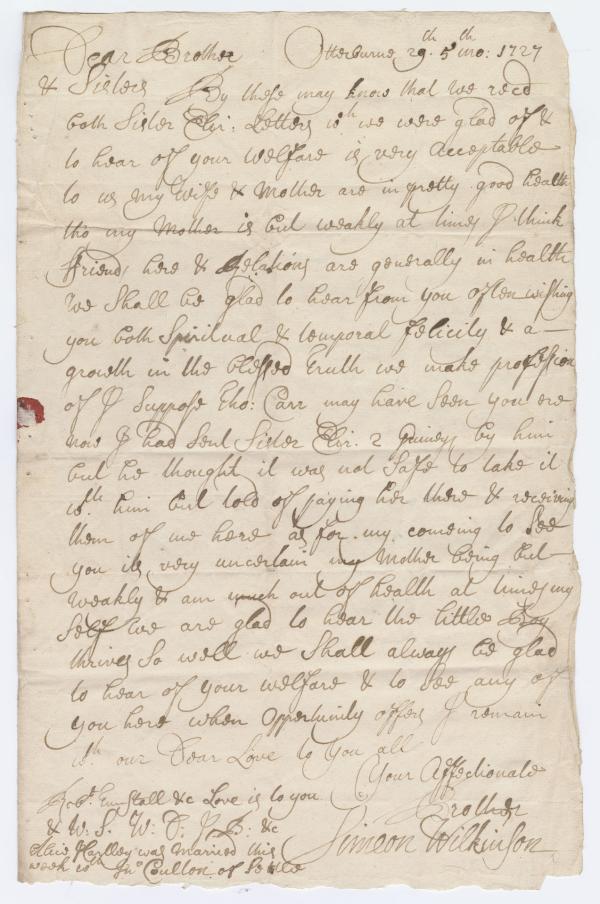 Dear Brother Otterburne 29th 5th mo: 1727
& Sisters By these may know that we recd
both Sister Elir: Letters wch we were glad of &
to hear of your welfare is very acceptable
to us my wife & Mother are in pretty good health
tho my Mother is but weakly at times I think
friends here & Relations are generally in health
we Shall be glad to hear from you often wishing
you both Spiritual & temporal felicity & a
growth in the blessed truth we make profession
of I Suppose Tho: Carr may have Seen you ere
now I had Sent Sister Elir: 2 Guineys by him
but he thought it was not Safe to take it
wth him but told of paying her there & receiving
them of me here as for my comeing to See
you its very uncertain my Mother being but
weakly & am much out of health at times my
Self we are glad to hear the little Boy
thrives So well we Shall always be glad
to hear of your welfare & to See any of
you here when Opportunity offers I remain
wth our Dear Love to you all
Your Affectionate
Brother
Simeon Wilkinson
Robt. Tunstall &c Love is to you
& W: S. W: D. J: B: &c
Alice Hartley was Married this
week wth Jno Coulton of Settle